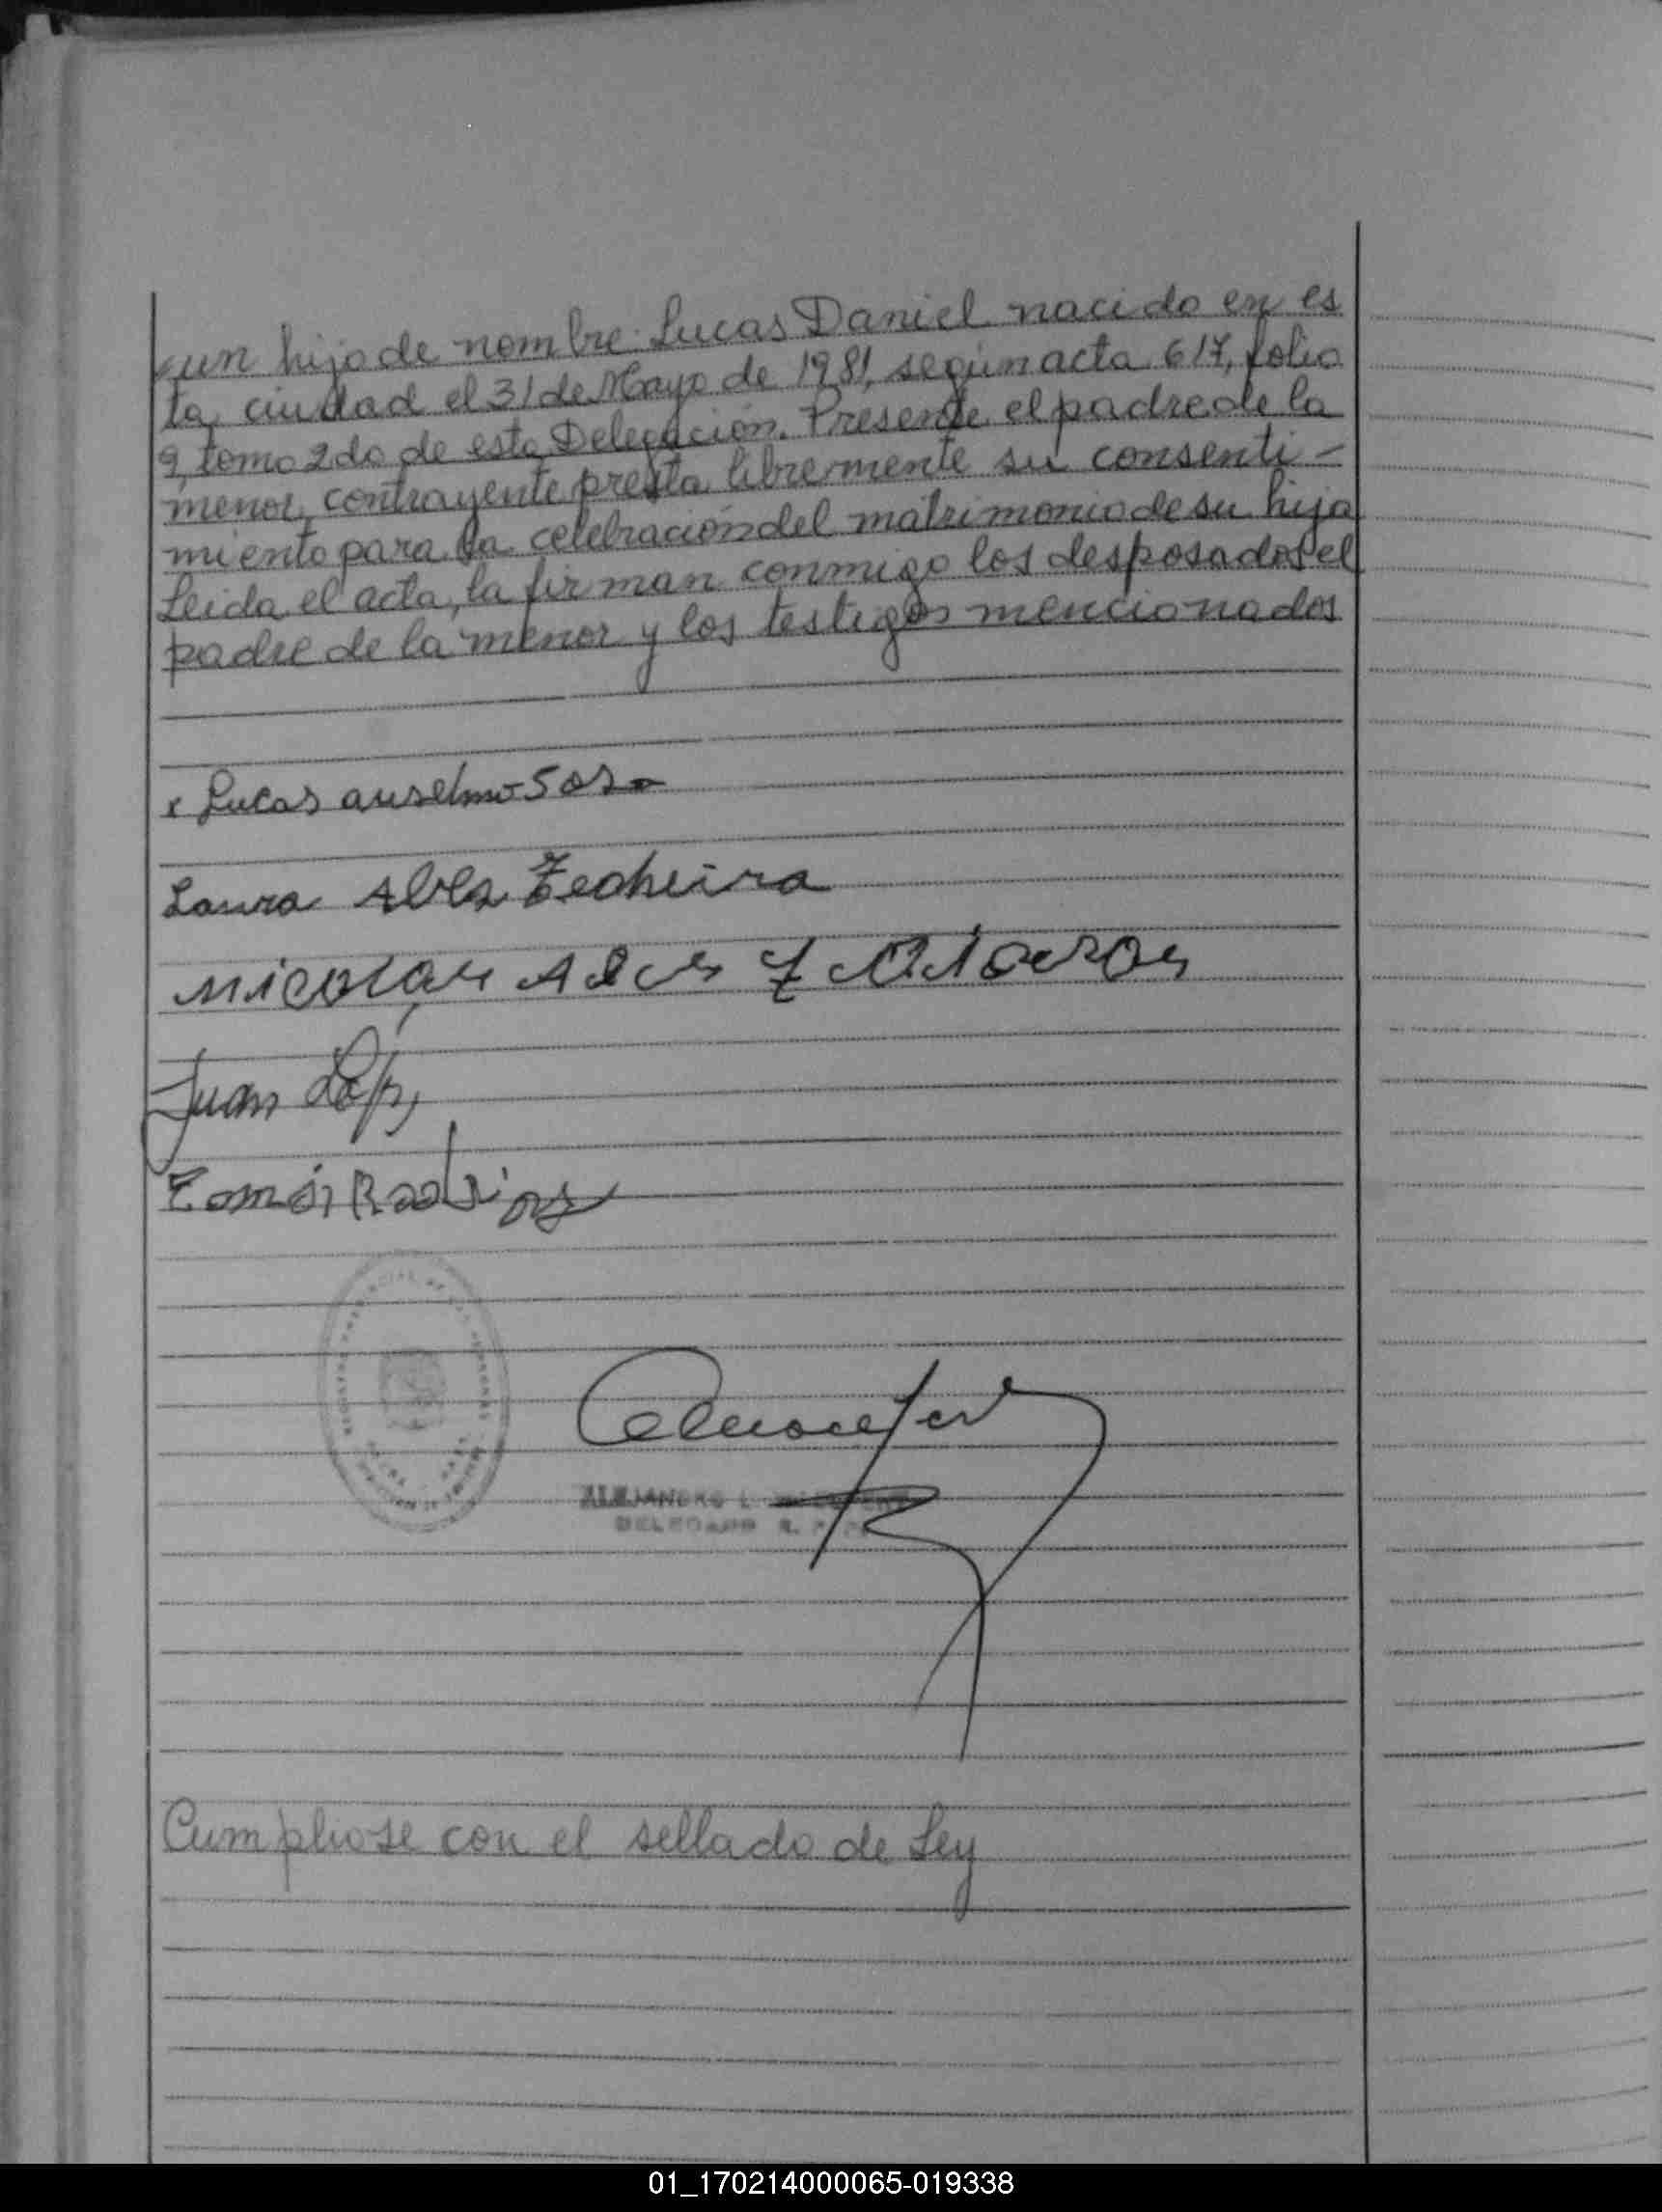 un hijo de nombre: Lucas Daniel nacido en es
ta ciudad el 31 de Mayo de 1981, según acta 617, folio
9, tomo 2do de esta Delegación. Presente el padre de la
menor contrayente presta libremente su consenti-
miento para la celebración del matrimonio de su hija
Leida el acta, la firman conmigo los desposados el
padre de la menor y los testigos mencionados
x Lucas anselmo Sosa
Laura Alves
Juan
Tomás
ALEJANDRO L.
DELEGADO
Cumpliose con el sellado de Ley
01_170214000065-019338